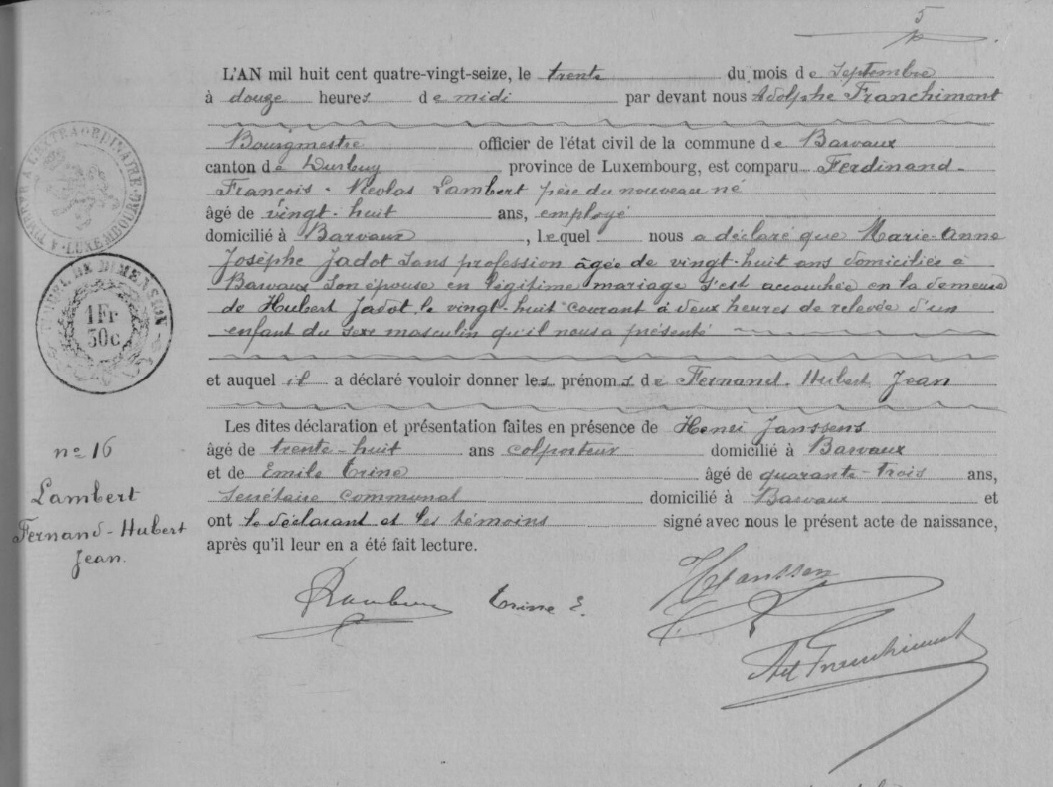 5
L'AN mil huit cent quatre-vingt-seize, le trente du mois de Septembre
à douze heures de midi par devant nous Adolphe Franchimont
Bourgmestre officier de l'état civil de la commune de Barvaux
canton de Durbuy province de Luxembourg, est comparu Ferdinand-
François-Nicolas Lambert père du nouveau né
âgé de vingt-huit ans, employé
domicilié à Barvaux, lequel nous a déclaré que Marie-Anne
Josèphe Jadot sans profession âgée de vingt-huit ans domiciliée à
Barvaux son épouse en légitime mariage s'est accouchée en la demeure
de Hubert Jadot le vingt-huit courant à deux heures de relevée d'un
enfant du sexe masculin qu'il nous a présenté
et auquel il a déclaré vouloir donner les prénoms de Fernand-Hubert Jean
Les dites déclaration et présentation faites en présence de Henri Janssens
âgé de trente-huit ans colporteur domicilié à Barvaux
et de Emile Trine âgé de quarante-trois ans,
Secrétaire communal domicilié à Barvaux et
ont le déclarant et les témoins signé avec nous le présent acte de naissance,
après qu'il leur en a été fait lecture.
TIMBRE A L'EXTRAORDINAIRE · LUXEMBOURG
DE DIMENSION
1 Fr
50 c
n° 16
Lambert
Fernand-Hubert
Jean.
Trine E.
H Janssen
Ad Franchimont